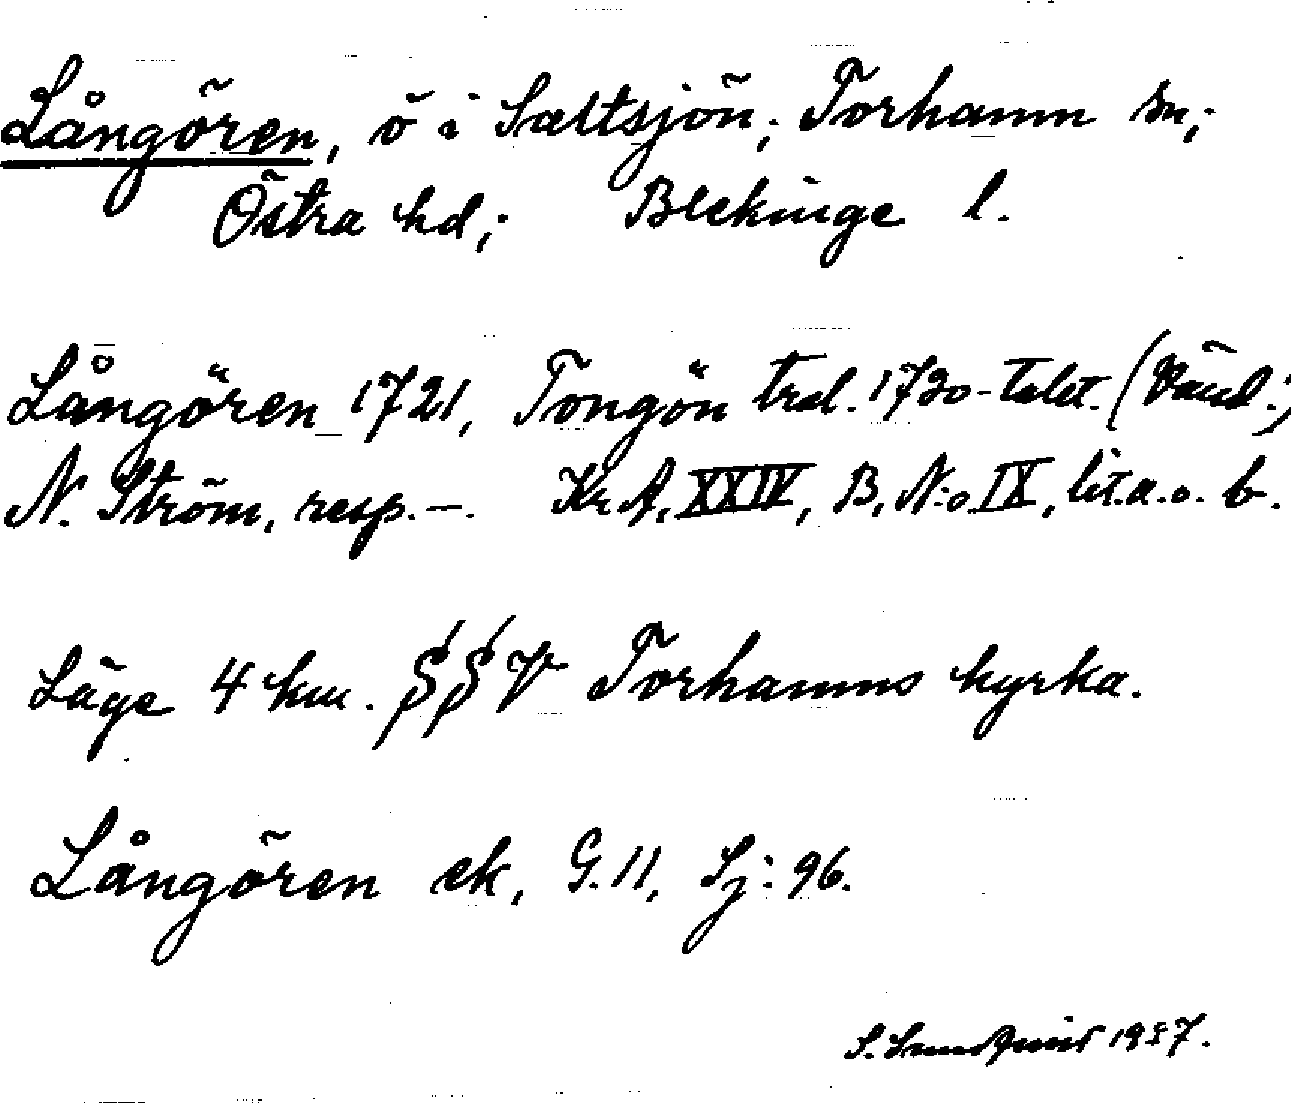 Långören, ö i Saltsjön; Torhamn sn;
Östra hd; Blekinge l.
Långören 1721, Tongön trol. 1720-talet.
N. Ström, resp. —. Kr A, XXIV, B, N:o IX, lit. a. o. b.
Läge 4 km. SSV Torhamns kyrka.
Långören ek, G. 11, Sj: 96.
S. 1937.